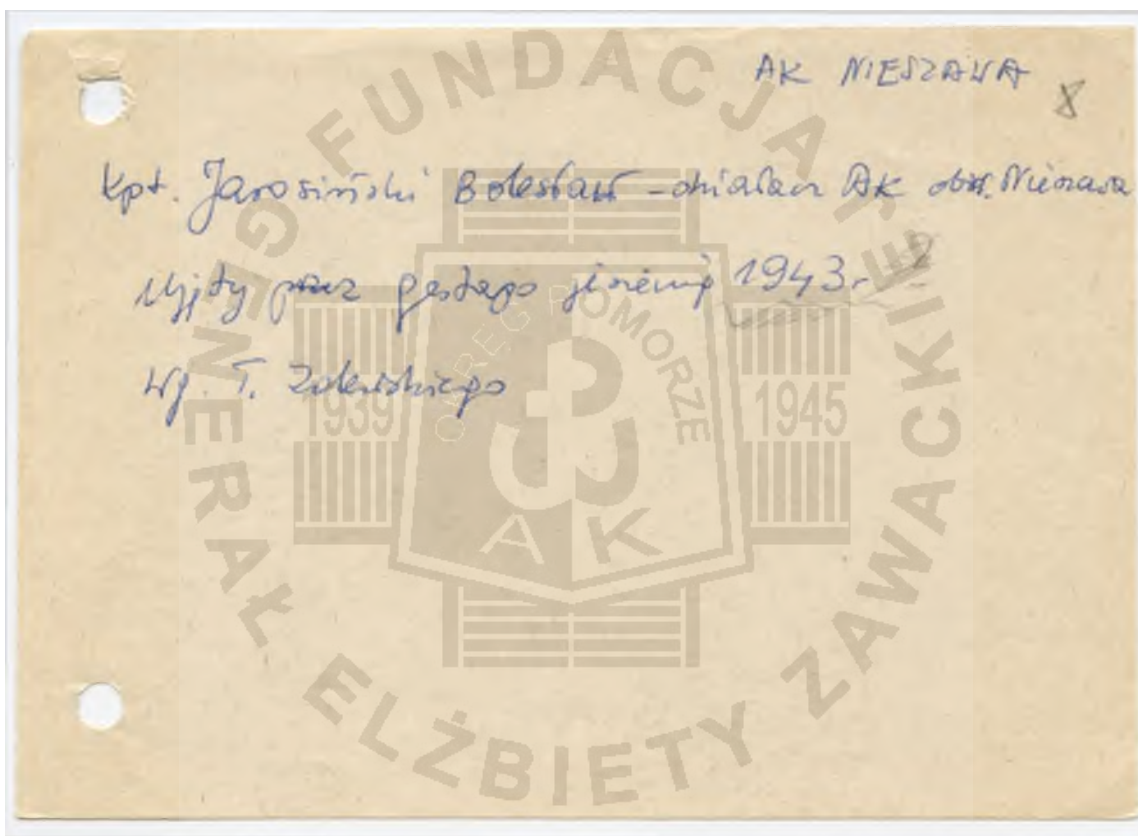 AK NIESZAWA
8
kpt. Jarosiński Bolesław - działacz AK obw. Nieszawa
Ujęty przez gestapo jesienią 1943 r. ?
wg. T.
FUNDACJA GENERAŁ ELŻBIETY ZAWACKIEJ
OKRĘG POMORZE
1939 1945
AK